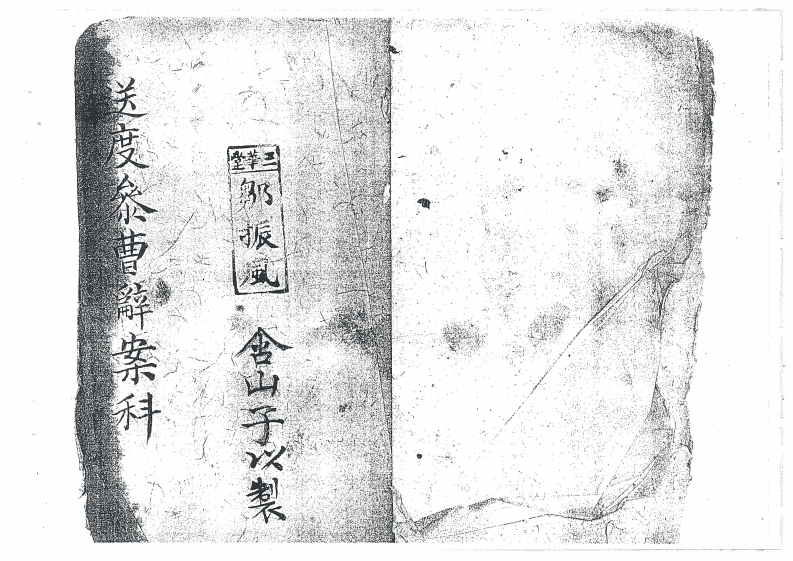 三華堂
鄒振風
山子以製
送度叅曹辭案科